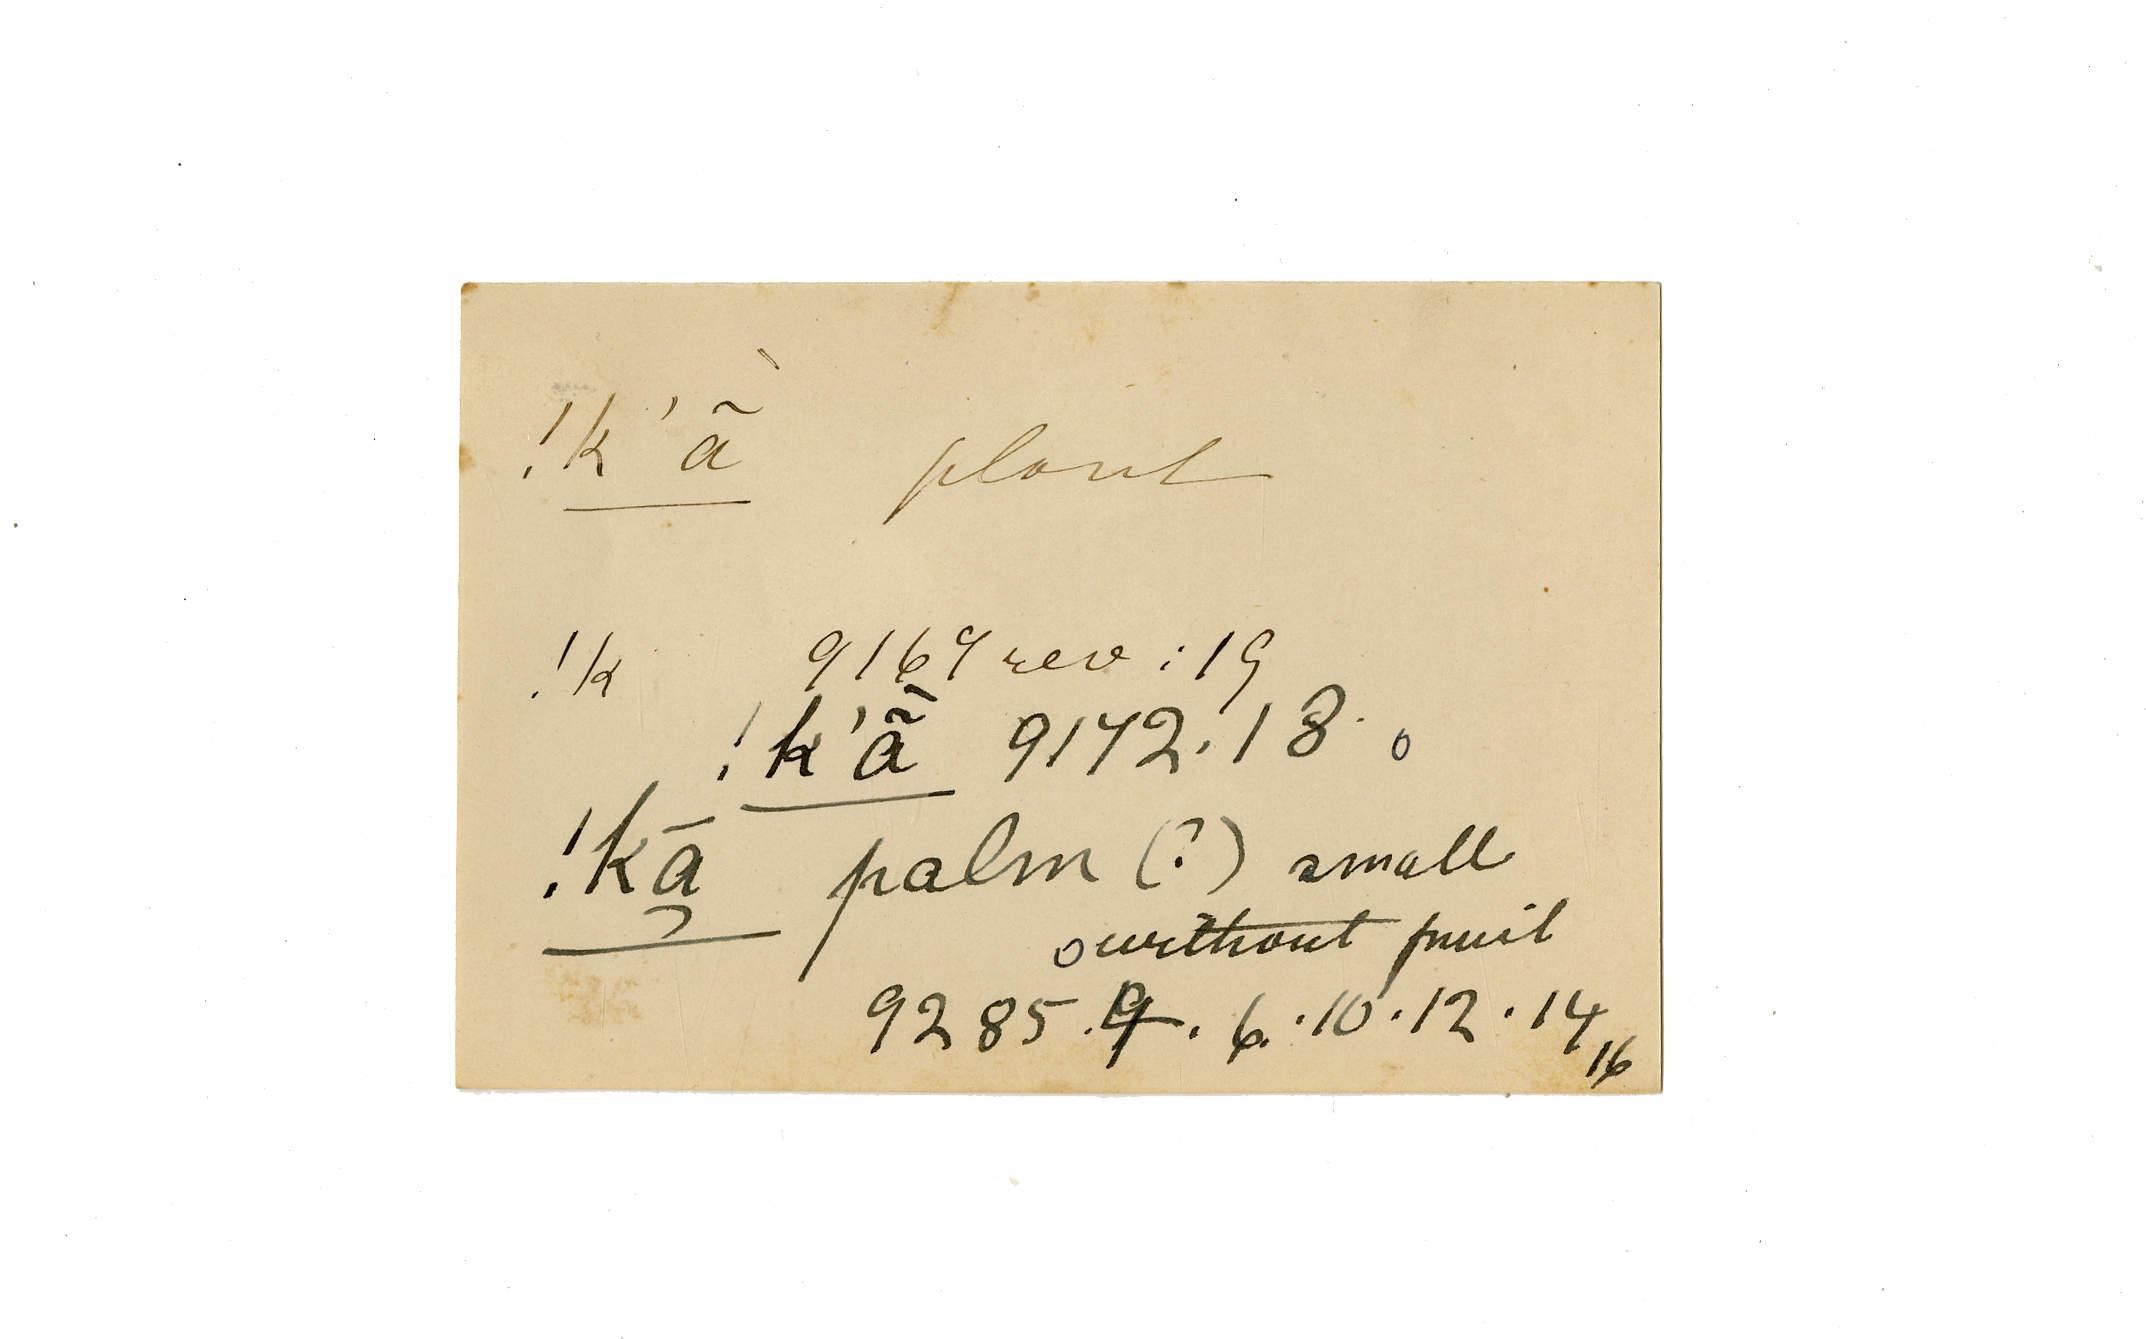 !k'ã̀ plant
!k 9169 rev : 19
!k'ã̀ 9172.18. o
!kā̰ palm (?) small
o without fruit
9285. 9. 6. · 10 · 12 · 14
16